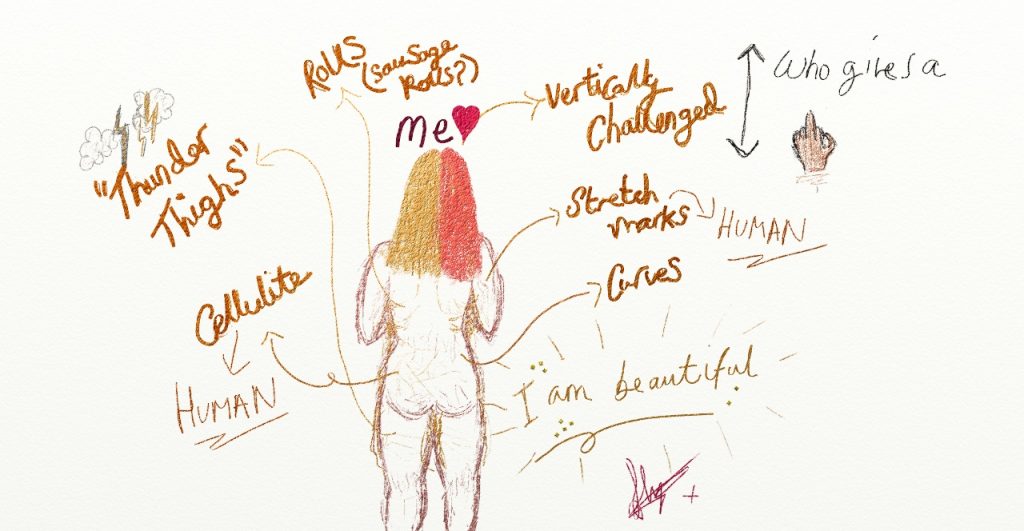 Rolls
(sausage
Rolls?)
me
Vertically
Challenged
Who gives a
"Thunder
Thighs"
Stretch
marks
HUMAN
Cellulite
HUMAN
Curves
I am beautiful